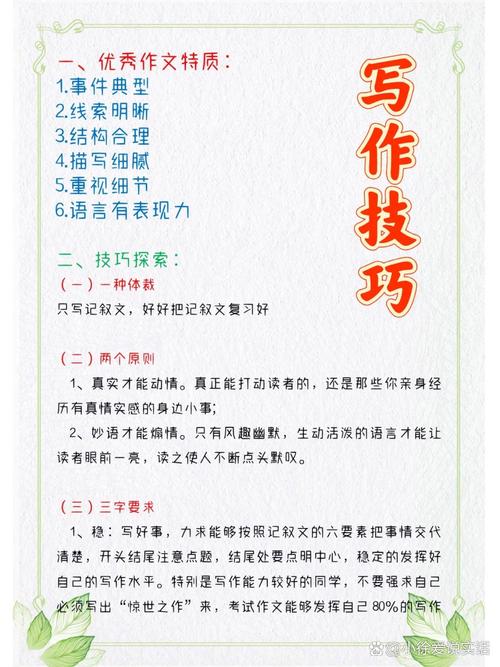 写作技巧
一、优秀作文特质：
1.事件典型
2.线索明晰
3.结构合理
4.描写细腻
5.重视细节
6.语言有表现力
二、技巧探索：
（一）一种体裁
只写记叙文，好好把记叙文复习好
（二）两个原则
1、真实才能动情。真正能打动读者的，还是那些你亲身经
历有真情实感的身边小事；
2、妙语才能煽情。只有风趣幽默，生动活泼的语言才能让
读者眼前一亮，读之使人不断点头默叹。
（三）三字要求
1、稳：写好事，力求能够按照记叙文的六要素把事情交代
清楚，开头结尾注意点题，结尾处要点明中心，稳定的发挥好
自己的写作水平。特别是写作能力较好的同学，不要强求自己
必须写出“惊世之作”来，考试作文能够发挥自己80%的写作
小徐爱说实话